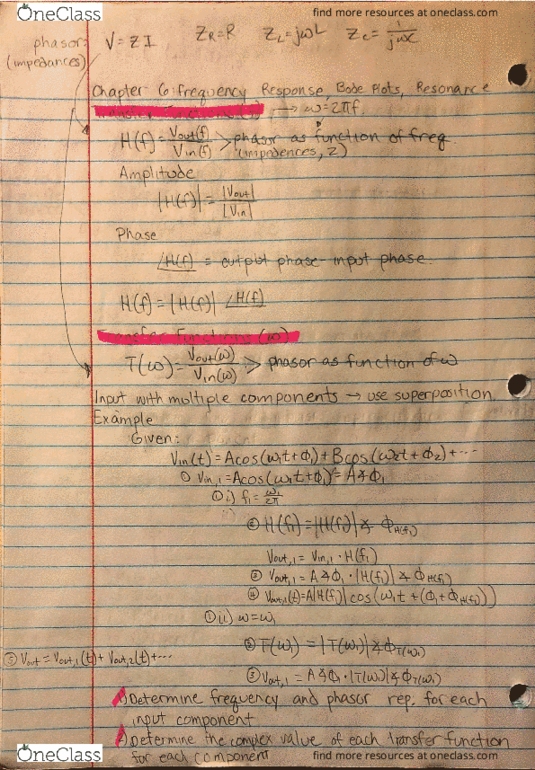 OneClass
find more resources at oneclass.com
phasor: V = Z I Z_R = R Z_L = jωL Z_C = 1/jωC
(impedances)
Chapter 6: frequency Response, Bode Plots, Resonance
→ ω = 2πf
H(f) = Vout(f)/Vin(f) > phasor as function of freq.
(impedences, Z)
Amplitude
|H(f)| = |Vout|/|Vin|
Phase
∠H(f) = output phase - input phase.
H(f) = |H(f)| ∠H(f)
Transfer Functions (ω)
T(ω) = Vout(ω)/Vin(ω) > phasor as function of ω
Input with multiple components → use superposition
Example
Given:
Vin(t) = Acos(ω₁t+ϕ₁) + Bcos(ω₂t+ϕ₂) + ...
① Vin,1 = Acos(ω₁t+ϕ₁) = A∡ϕ₁
① i) f₁ = ω₁/2π
② H(f₁) = |H(f₁)| ∡ ϕ_H(f₁)
Vout,1 = Vin,1 · H(f₁)
③ Vout,1 = A∡ϕ₁ · |H(f₁)| ∡ ϕ_H(f₁)
④ Vout,1(t) = A|H(f₁)| cos(ω₁t + (ϕ₁+ϕ_H(f₁)))
① ii) ω = ω₁
② T(ω₁) = |T(ω₁)|∡ϕ_T(ω₁)
⑤ Vout = Vout,1(t) + Vout,2(t) + ...
③ Vout,1 = A∡ϕ₁ · |T(ω₁)|∡ϕ_T(ω₁)
1) Determine frequency and phasor rep. for each
input component
2) Determine the complex value of each transfer function
for each component
OneClass
find more resources at oneclass.com